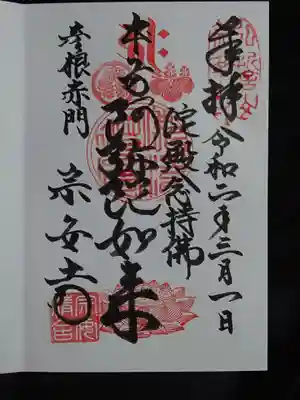 奉拝
令和六年三月一日
淀殿念持佛
本尊阿弥陀如来
彦根赤門
宗安寺